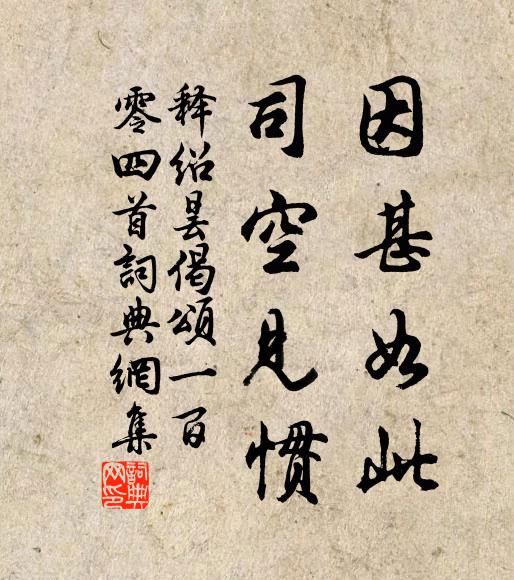 因甚如此
司空见惯
释绍昙偈颂一百
零四首詞典網集
詞典
网印